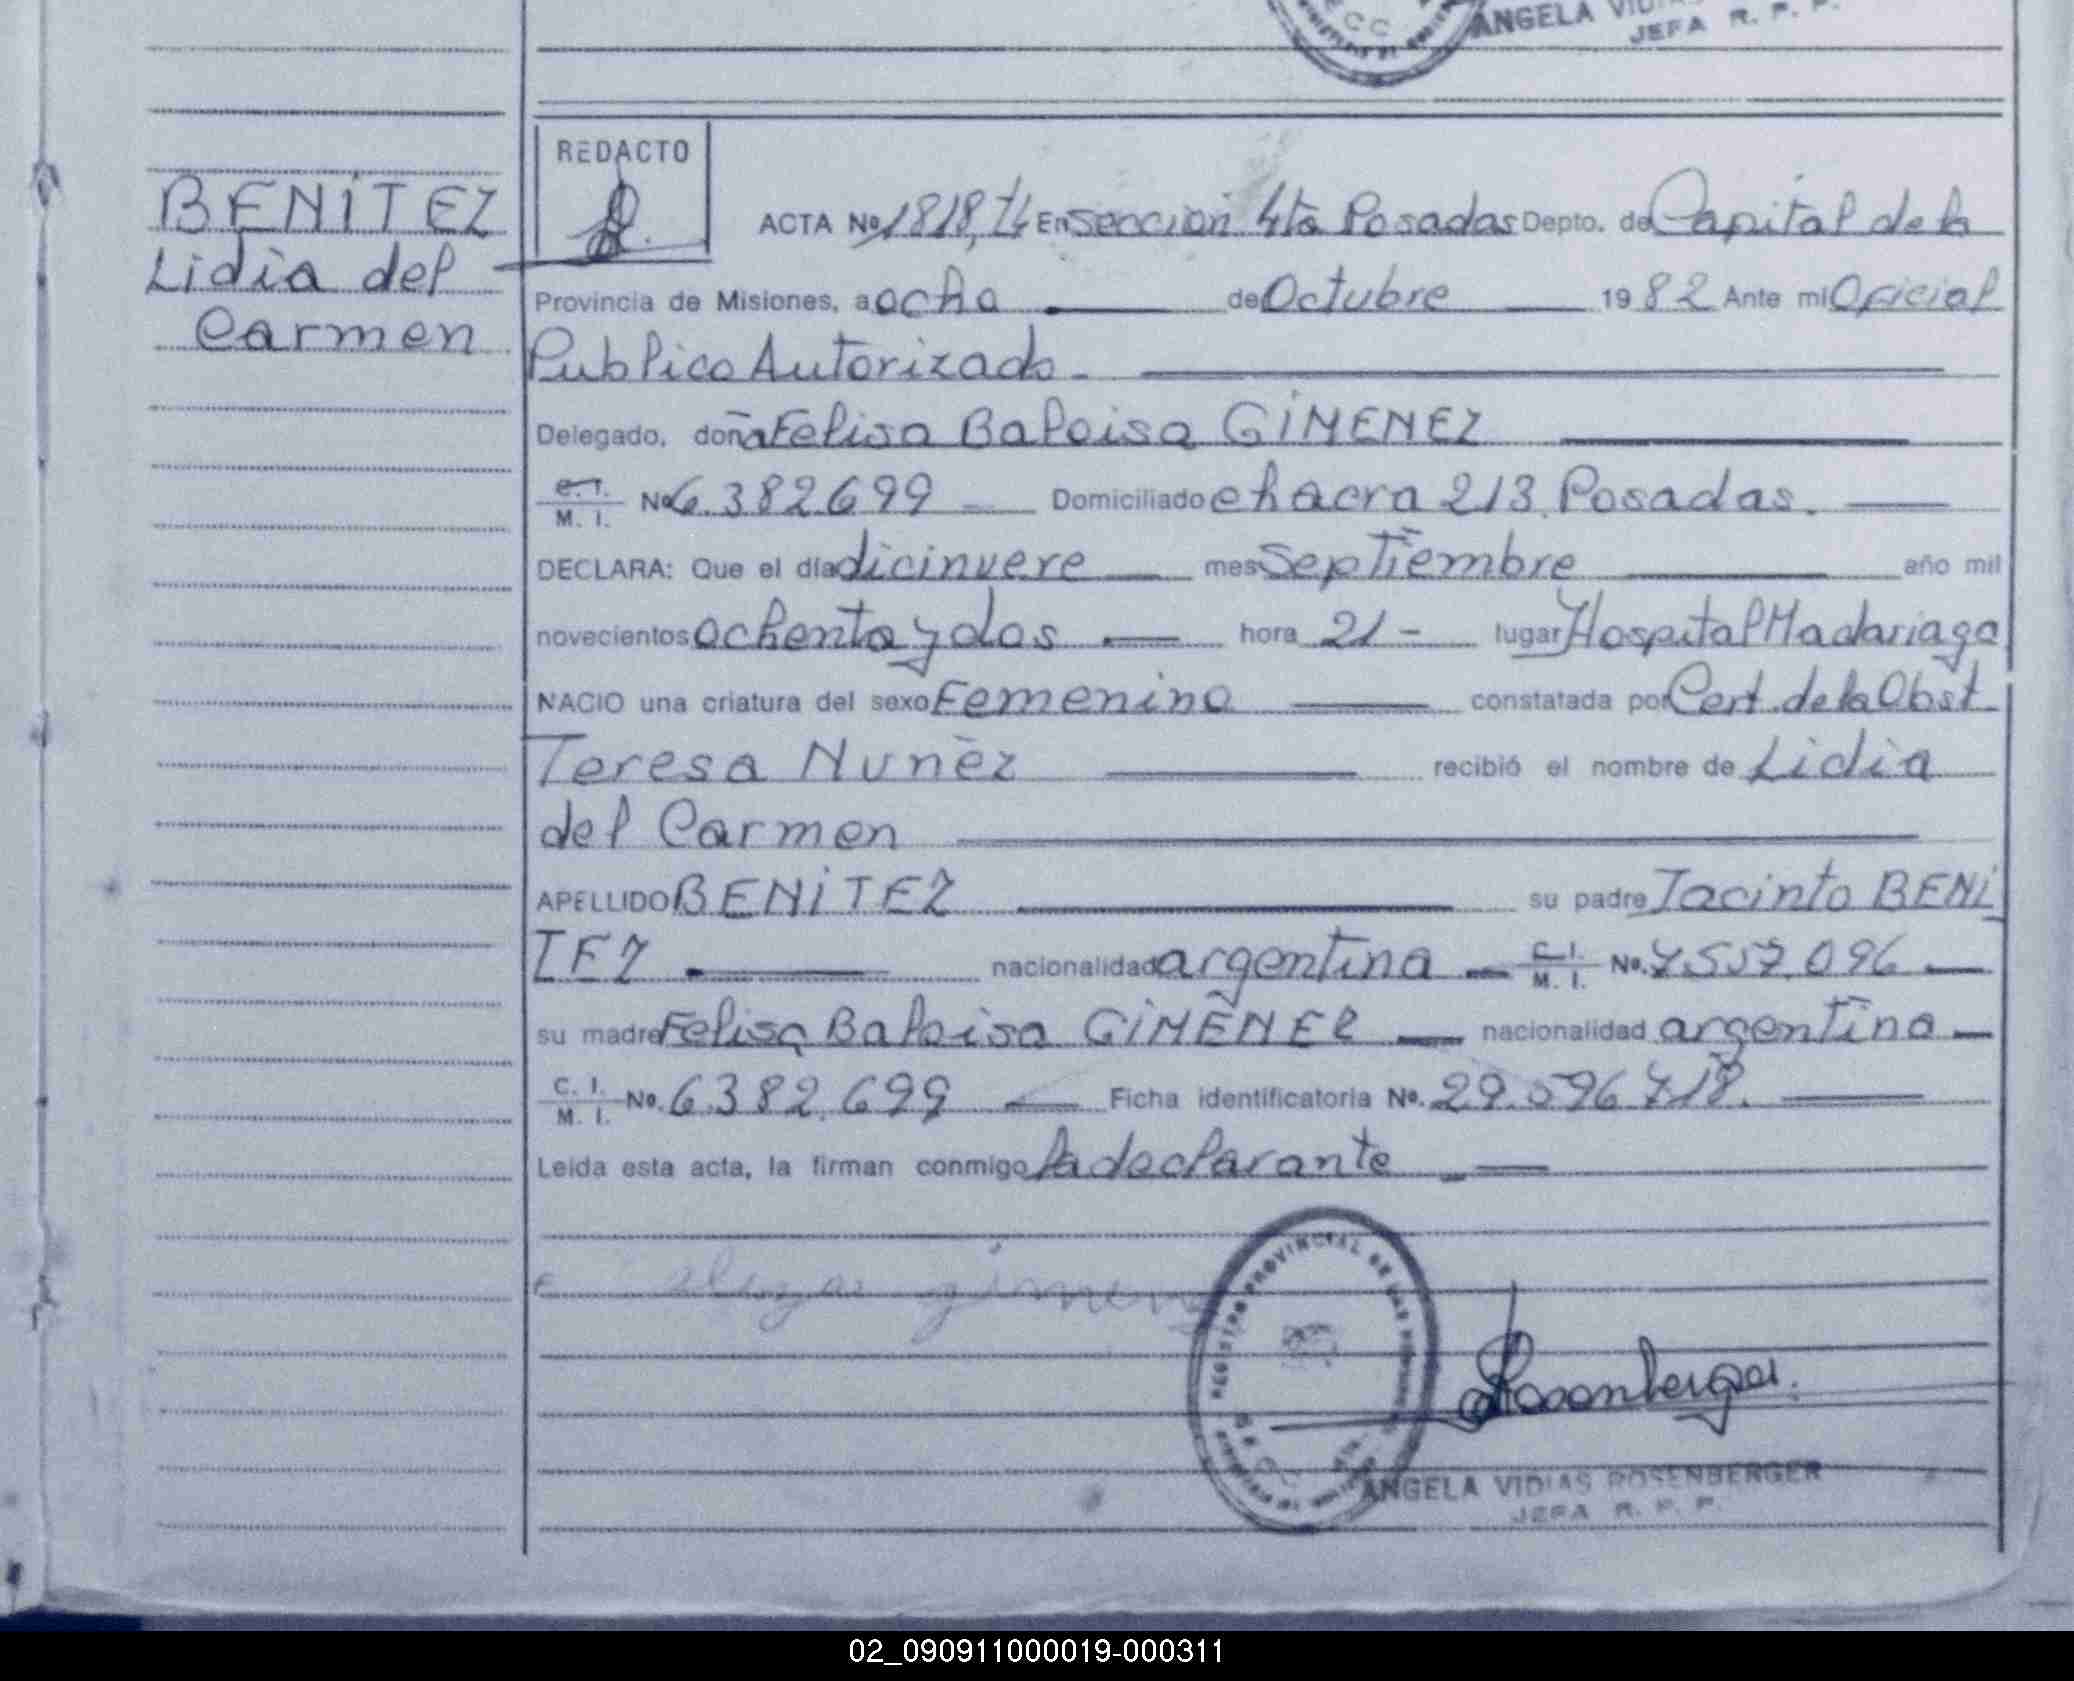 ANGELA VID
JEFA R. P. P.
REDACTO
BENITEZ
Lidia del
Carmen
ACTA No 1818, t4 En seccion 4ta Posadas Depto. de Capital de la
Provincia de Misiones, a ocho de Octubre 1982 Ante mi Oficial
Publico Autorizado -
Delegado, doña Felisa Baloisa GIMENEZ
C. I. M. I. No 6.382.699 Domiciliado chacra 213 Posadas.
DECLARA: Que el día dicinuere mes Septiembre año mil
novecientos ochenta y dos hora 21 - lugar Hospital Madariaga
NACIO una criatura del sexo Femenino constatada por Cert. de la Obst
Teresa Nuñez recibió el nombre de Lidia
del Carmen
APELLIDO BENITEZ su padre Jacinto BENI
TEZ nacionalidad argentina C. I. M. I. No. 7557.096
su madre Felisa Baloisa GIMENEZ nacionalidad argentina
C. I. M. I. No. 6.382.699 Ficha identificatoria No. 29.596.718.
Leida esta acta, la firman conmigo la declarante
REGISTRO PROVINCIAL DE LAS PERSONAS
Rosenberger
ANGELA VIDIAS ROSENBERGER
JEFA R. P. P.
02_090911000019-000311